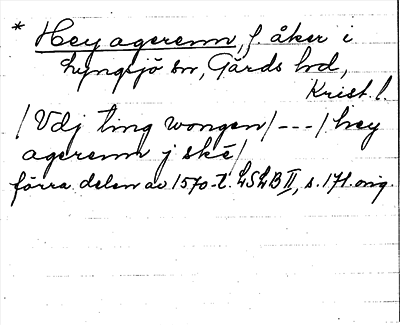 * Hey agerenn, f. åker i
Lyngsjö sn, Gärds hd,
Krist. l.
/Vdj ting wongen/ --- / hey
agerenn j ské/
förra delen av 1570-t. LSLB II, s. 171. orig.